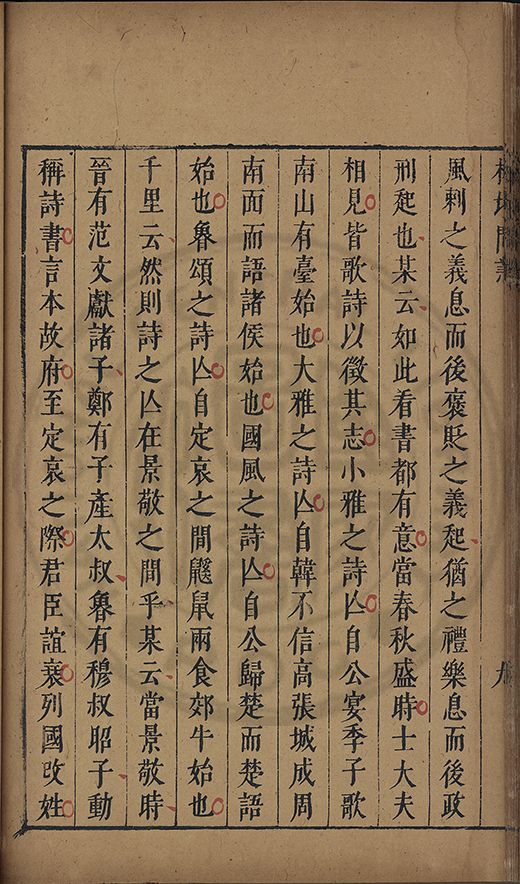 風刺之義息而後褒貶之義起猶之禮樂息而後政
刑起也某云如此看書都有意當春秋盛時士大夫
相見皆歌詩以徵其志小雅之詩亾自公宴季子歌
南山有臺始也大雅之詩亾自韓不信高張城成周
南面而語諸侯始也國風之詩亾自公歸楚而楚語
始也魯頌之詩亾自定哀之間鼷鼠兩食郊牛始也
千里云然則詩之亾在景敬之間乎某云當景敬時
晉有范文獻諸子鄭有子產太叔魯有穆叔昭子動
稱詩書言本故府至定哀之際君臣誼衰列國改姓